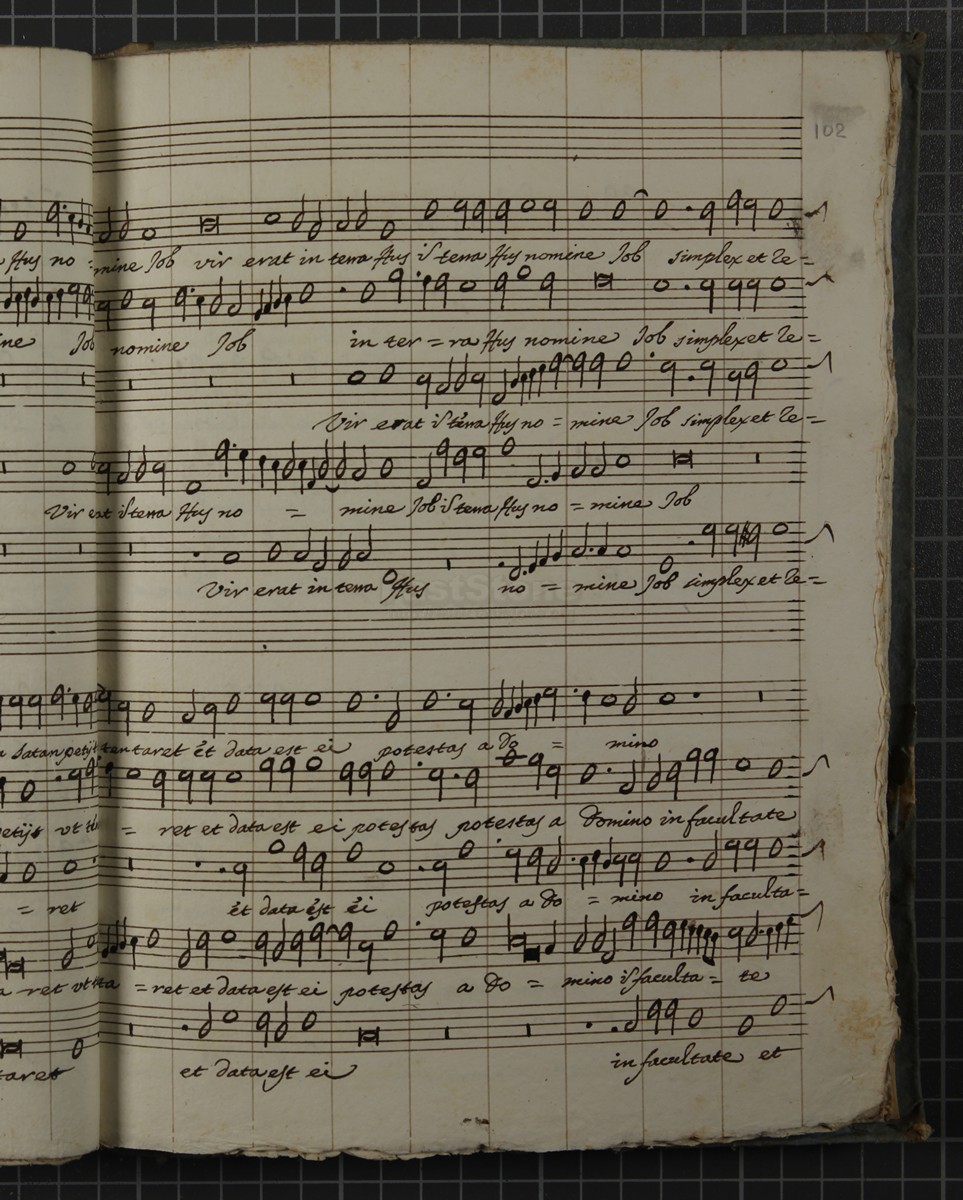 102
Hus no = mine Job vir erat in terra Hus i terra Hus nomine Job simplex et Re =
ine Job nomine Job in ter = ra Hus nomine Job simplex et Re =
Vir erat i terra Hus no = mine Job simplex et Re =
Vir erat i terra Hus no = mine Job i terra Hus no = mine Job
Vir erat in terra Hus no = mine Job simplex et Re =
Satan petijt tentaret et data est ei potestas a do = mino
petijt vt = ret et data est ei potestas potestas a Domino in facultate
= ret et data est ei potestas a do = mino in faculta =
ret vt = ret et data est ei potestas a do = mino i faculta = te
taret et data est ei in facultate et